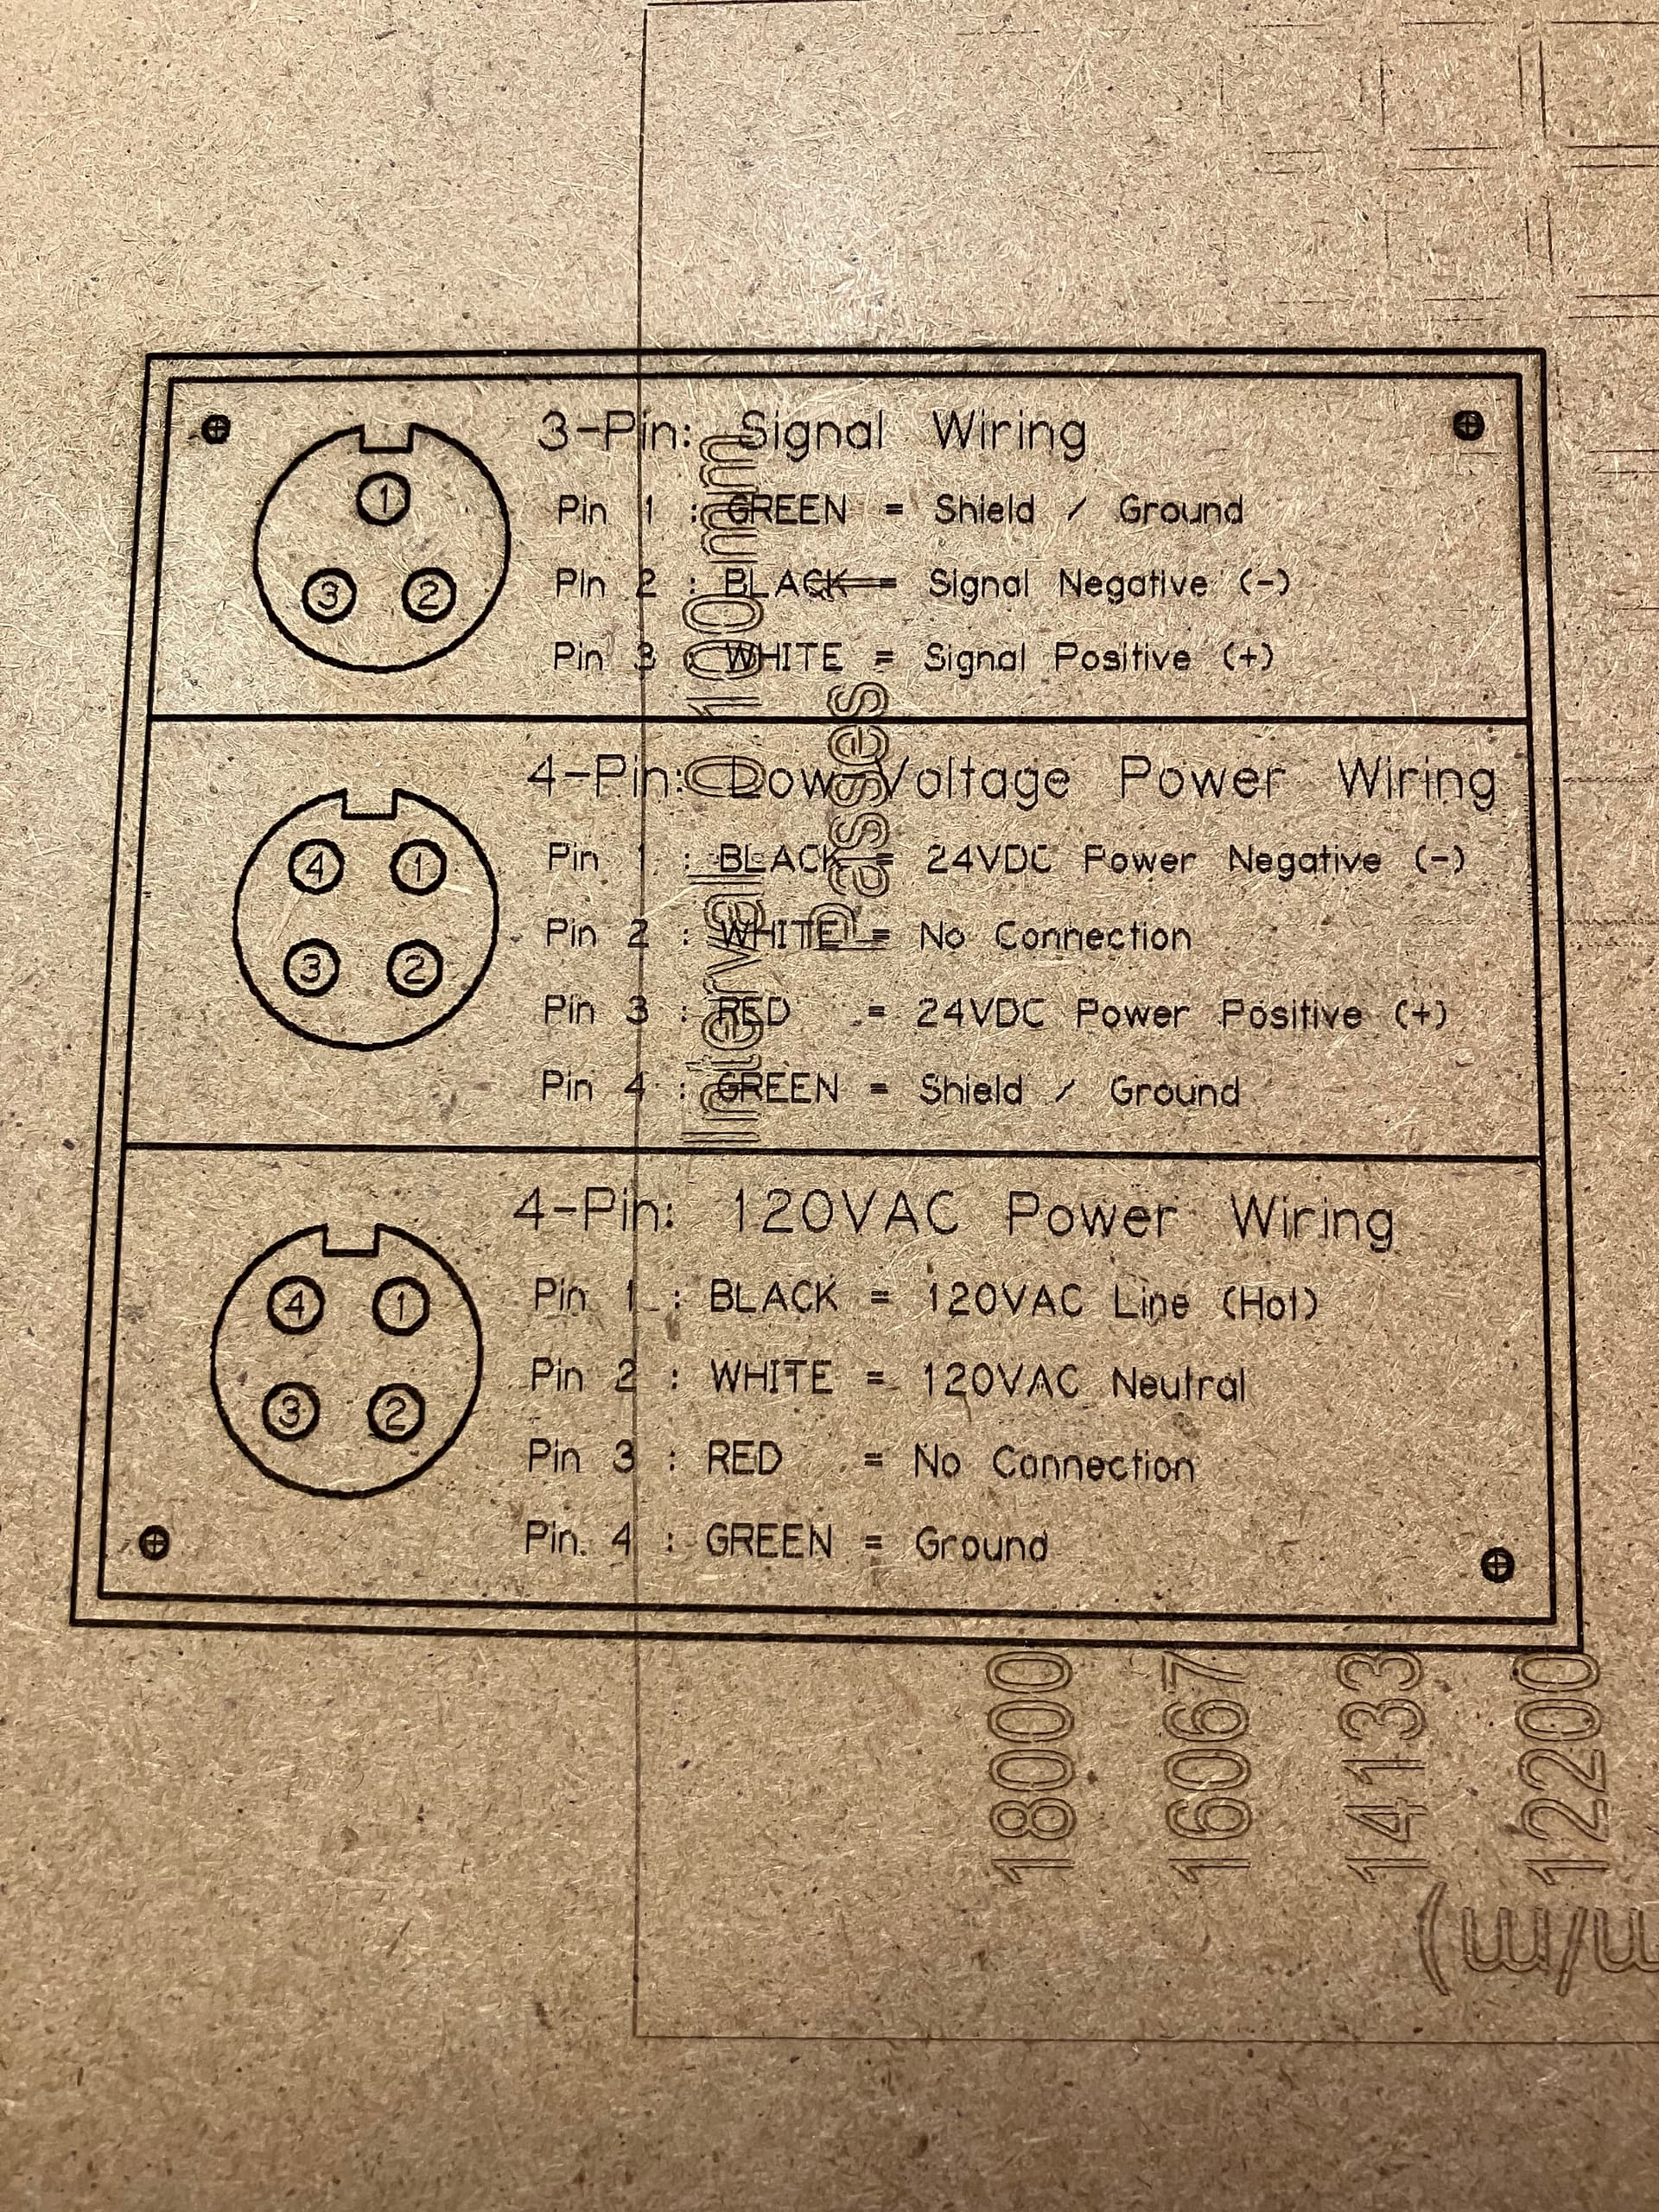 3-Pin: Signal Wiring
1
3 2
Pin 1 : GREEN = Shield / Ground
Pin 2 : BLACK = Signal Negative (-)
Pin 3 : WHITE = Signal Positive (+)
4-Pin: Low Voltage Power Wiring
4 1
3 2
Pin 1 : BLACK = 24VDC Power Negative (-)
Pin 2 : WHITE = No Connection
Pin 3 : RED = 24VDC Power Positive (+)
Pin 4 : GREEN = Shield / Ground
4-Pin: 120VAC Power Wiring
4 1
3 2
Pin 1 : BLACK = 120VAC Line (Hot)
Pin 2 : WHITE = 120VAC Neutral
Pin 3 : RED = No Connection
Pin 4 : GREEN = Ground
Passes
18000
16067
14133
12200